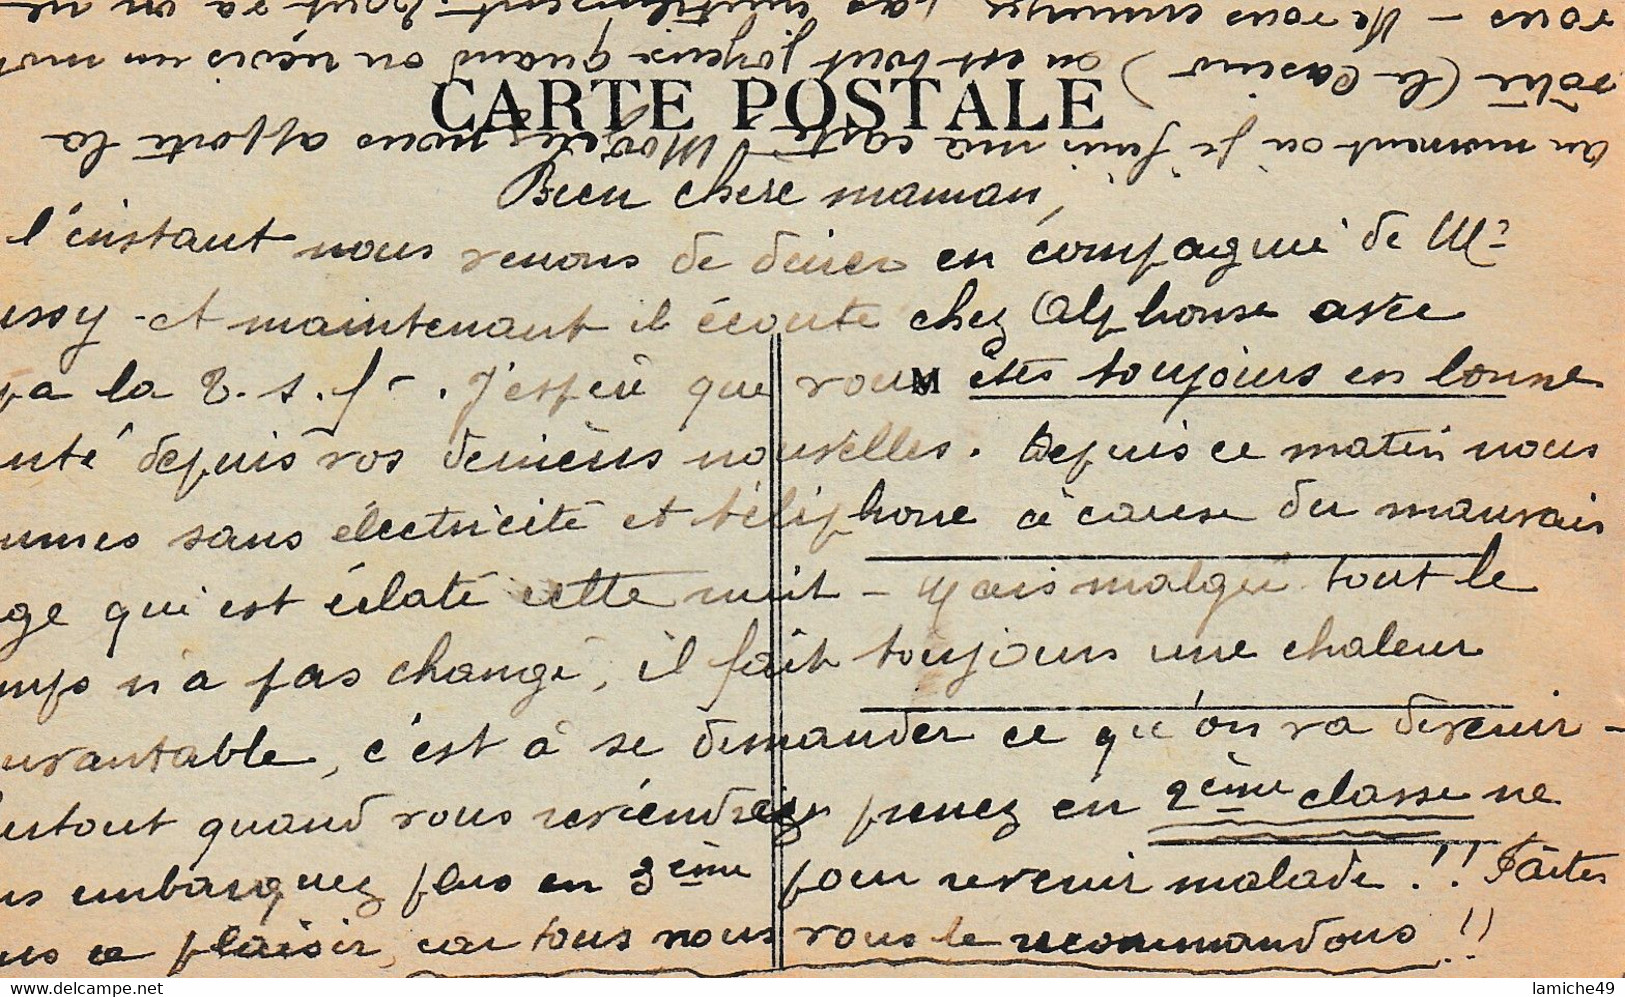 CARTE POSTALE
Bien chère maman,
l'instant nous venons de dîner en compagnie de Mr
ussy - et maintenant il écoute chez Alphonse avec
la T.S.f. J'espère que vous êtes toujours en bonne
nté depuis vos dernières nouvelles. Depuis ce matin nous
mmes sans électricité et téléphone à cause du mauvais
ge qui est éclaté cette nuit - Mais malgré tout le
mps n'a pas changé, il fait toujours une chaleur
uvantable, c'est à se demander ce qu'on va devenir -
urtout quand vous reviendrez prenez en 2ème classe ne
us embarquez plus en 3ème pour revenir malade !! Faites
us ce plaisir, car tous nous vous le recommandons !!
au moment où je finis ma carte nous apporte la
vôtre (le Casino) on est tout joyeux quand on reçoit un mot
vous - Ne vous ennuyez pas inutilement, tout va on ne
delcampe.net
lamiche49